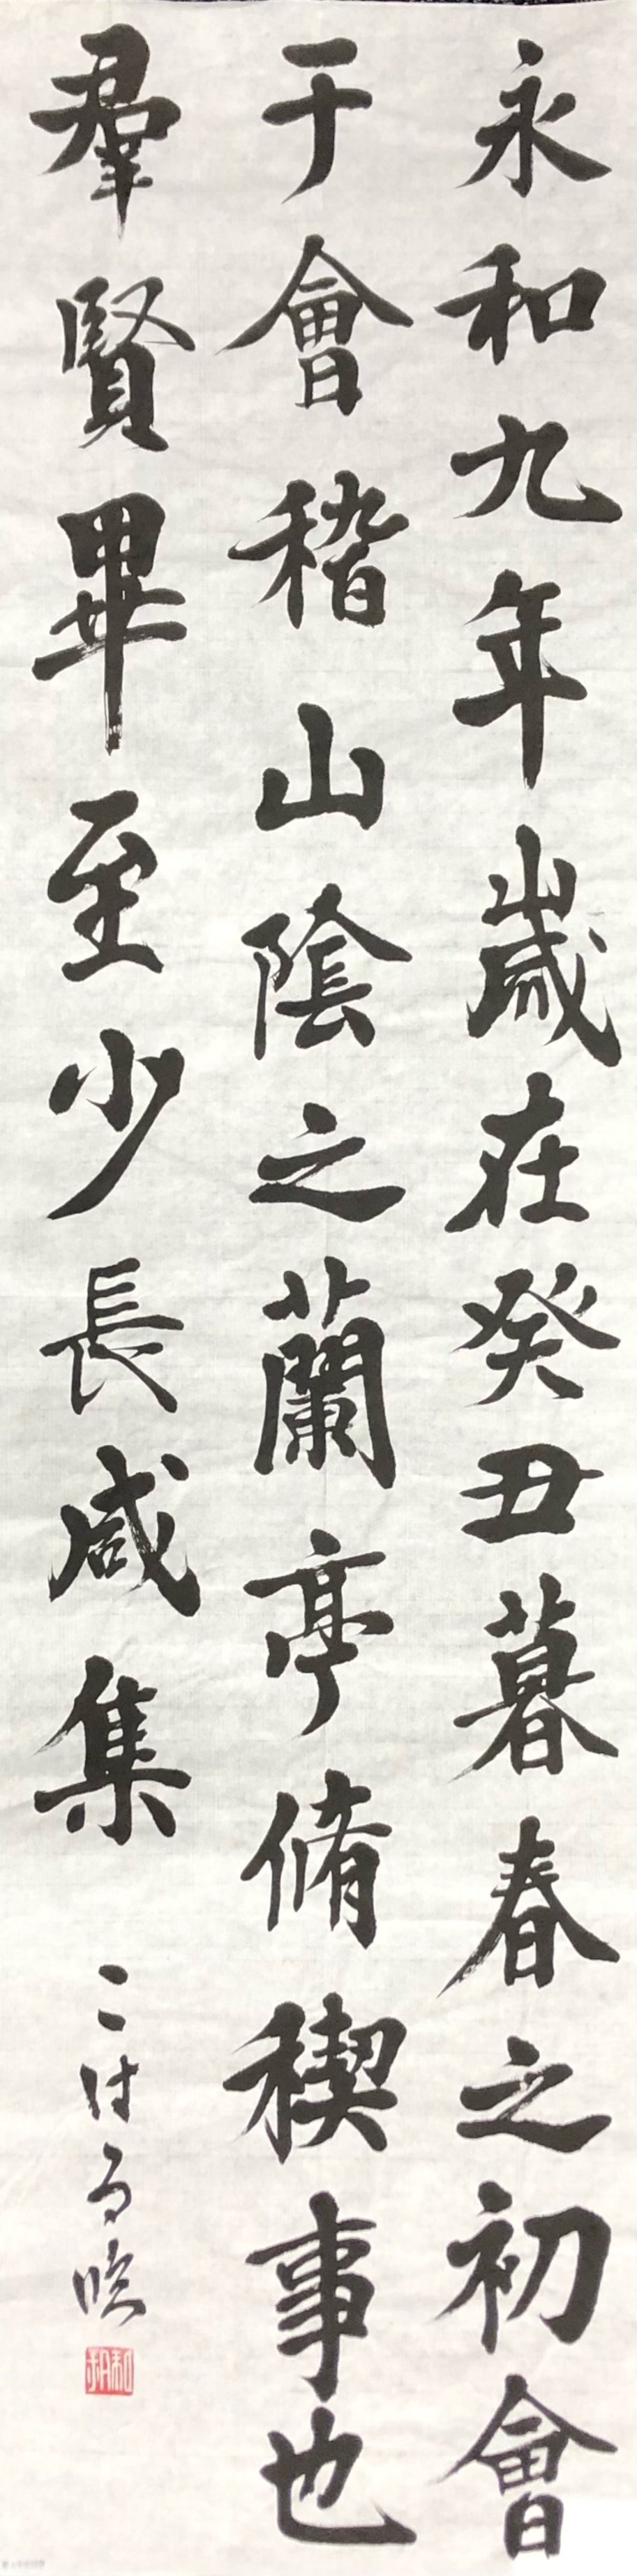 永和九年歳在癸丑暮春之初會
于會稽山陰之蘭亭脩稧事也
羣賢畢至少長咸集
こはる咲